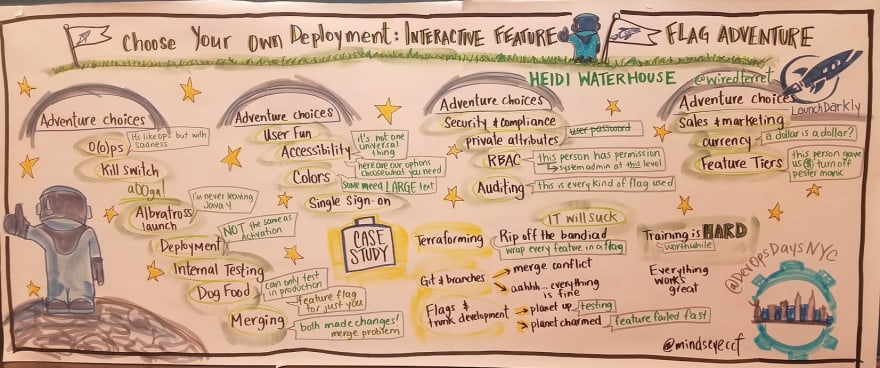 Choose Your Own Deployment: Interactive Feature FLAG ADVENTURE
HEIDI WATERHOUSE @wiredferret
LaunchDarkly
Adventure choices
O(o)ps
It's like ops but with
sadness
Kill switch
Albratross
launch
I'm never leaving
Java 4
Deployment
NOT the same as
Activation
Internal Testing
Dog Food
can only test
in production
feature flag
for just you
Merging
both made changes!
merge problem
Adventure choices
User Fun
Accessibility
it's not one
universal
thing
Colors
here are our options
choose what you need
Some need LARGE text
Single Sign-on
Adventure choices
Security & compliance
private attributes
user password
RBAC
this person has permission
system admin at this level
Auditing
this is every kind of flag used
Adventure choices
Sales & marketing
currency
a dollar is a dollar?
Feature Tiers
this person gave
us $ turn off
pester monic
CASE
STUDY
IT will suck
Terraforming
Rip off the bandiad
wrap every feature in a flag
Git & branches
merge conflict
aahhh... everything
is fine
Flags &
trunk development
planet up
testing
planet charmed
feature failed fast
Training is HARD
worthwhile
Everything
works
great
@DevOpsDaysNYC
@mindseyeccf